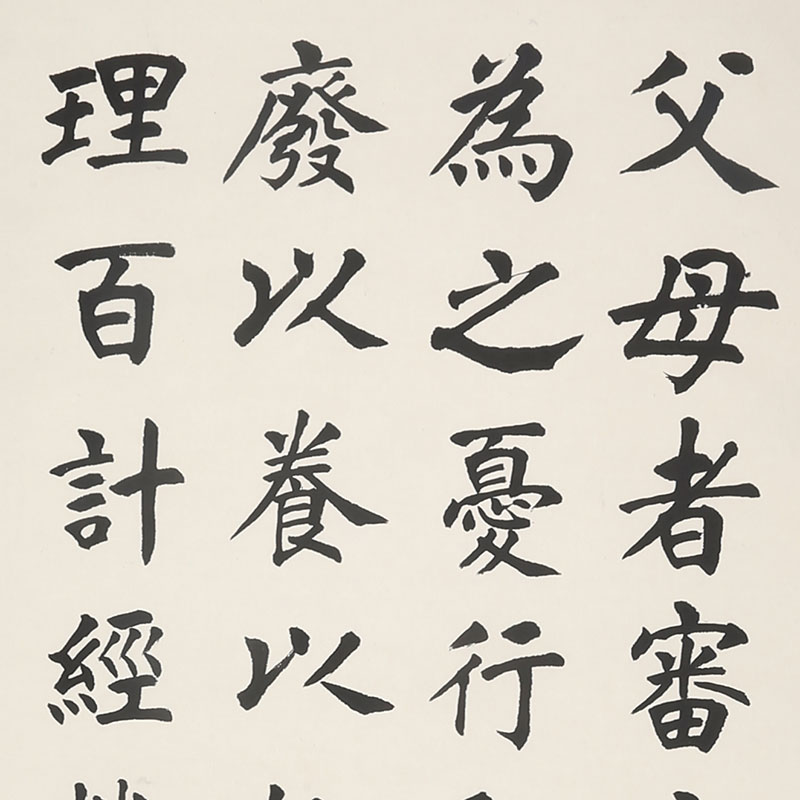 父母者審
為之憂行
廢以養以
理百計經